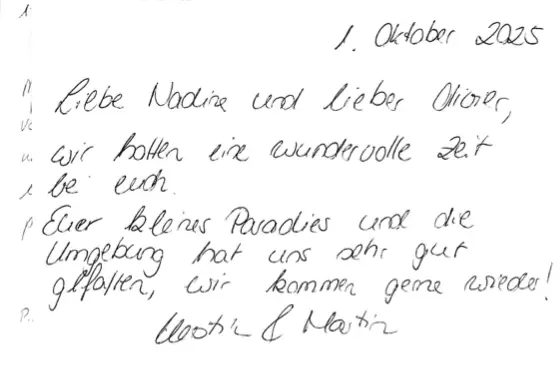 1. Oktober 2025
Liebe Nadine und lieber Olivier,
wir hatten eine wundervolle Zeit
bei euch.
Euer kleines Paradies und die
Umgebung hat uns sehr gut
gefallen, wir kommen gerne wieder!
& Martin